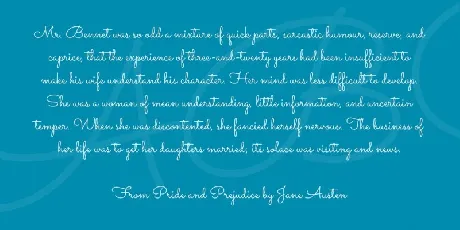 Mr. Bennet was so odd a mixture of quick parts, sarcastic humour, reserve, and
caprice, that the experience of three-and-twenty years had been insufficient to
make his wife understand his character. Her mind was less difficult to develop.
She was a woman of mean understanding, little information, and uncertain
temper. When she was discontented, she fancied herself nervous. The business of
her life was to get her daughters married; its solace was visiting and news.
From Pride and Prejudice by Jane Austen